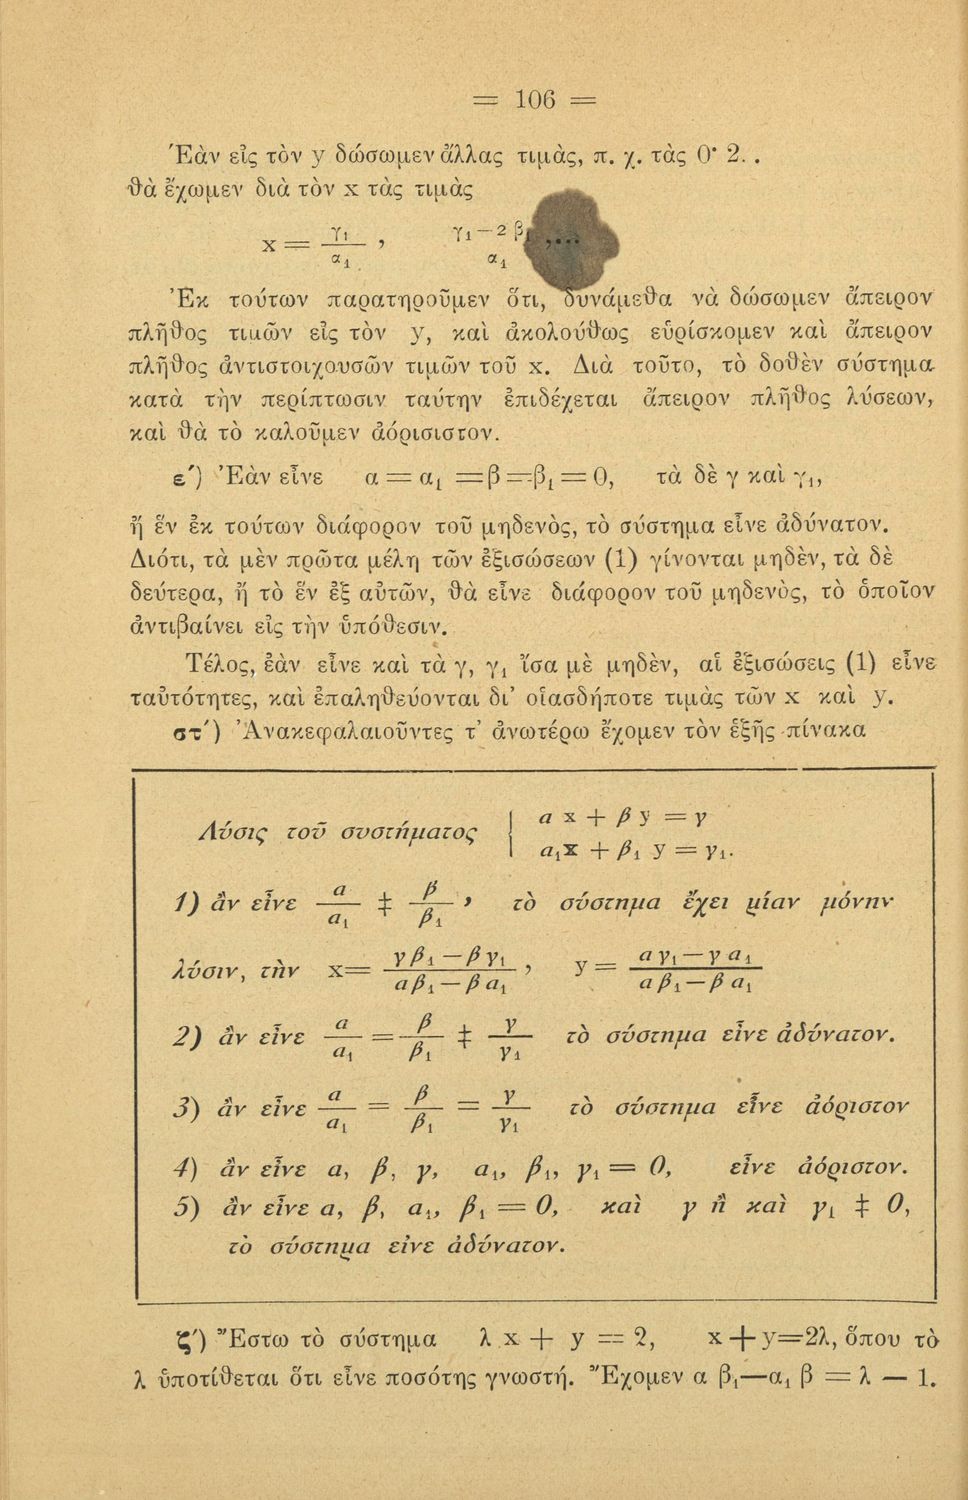 = 106 =
Ἐὰν εἰς τὸν y δώσωμεν ἄλλας τιμὰς, π. χ. τὰς 0· 2. .
θὰ ἔχωμεν διὰ τὸν x τὰς τιμὰς
x = γ₁/α₁ , γ₁—2 β₁/α₁ ,...
Ἐκ τούτων παρατηροῦμεν ὅτι, δυνάμεθα νὰ δώσωμεν ἄπειρον
πλῆθος τιμῶν εἰς τὸν y, καὶ ἀκολούθως εὑρίσκομεν καὶ ἄπειρον
πλῆθος ἀντιστοιχουσῶν τιμῶν τοῦ x. Διὰ τοῦτο, τὸ δοθὲν σύστημα
κατὰ τὴν περίπτωσιν ταύτην ἐπιδέχεται ἄπειρον πλῆθος λύσεων,
καὶ θὰ τὸ καλοῦμεν ἀόρισιστον.
ε΄) Ἐὰν εἶνε α = α₁ = β = β₁ = 0, τὰ δὲ γ καὶ γ₁,
ἢ ἕν ἐκ τούτων διάφορον τοῦ μηδενὸς, τὸ σύστημα εἶνε ἀδύνατον.
Διότι, τὰ μὲν πρῶτα μέλη τῶν ἐξισώσεων (1) γίνονται μηδὲν, τὰ δὲ
δεύτερα, ἢ τὸ ἕν ἐξ αὐτῶν, θὰ εἶνε διάφορον τοῦ μηδενὸς, τὸ ὁποῖον
ἀντιβαίνει εἰς τὴν ὑπόθεσιν.
Τέλος, ἐὰν εἶνε καὶ τὰ γ, γ₁ ἴσα μὲ μηδὲν, αἱ ἐξισώσεις (1) εἶνε
ταὐτότητες, καὶ ἐπαληθεύονται δι' οἱασδήποτε τιμὰς τῶν x καὶ y.
στ΄) Ἀνακεφαλαιοῦντες τ' ἀνωτέρω ἔχομεν τὸν ἑξῆς πίνακα
Λύσις τοῦ συστήματος α x + β y = γ
α₁x + β₁ y = γ₁.
1) ἂν εἶνε α/α₁ ‡ β/β₁ , τὸ σύστημα ἔχει μίαν μόνην
λύσιν, τὴν x= γβ₁—βγ₁/αβ₁—βα₁ , y = αγ₁—γα₁/αβ₁—βα₁
2) ἂν εἶνε α/α₁ = β/β₁ ‡ γ/γ₁ τὸ σύστημα εἶνε ἀδύνατον.
3) ἂν εἶνε α/α₁ = β/β₁ = γ/γ₁ τὸ σύστημα εἶνε ἀόριστον
4) ἂν εἶνε α, β, γ, α₁, β₁, γ₁ = 0, εἶνε ἀόριστον.
5) ἂν εἶνε α, β, α₁, β₁ = 0, καὶ γ ἢ καὶ γ₁ ‡ 0,
τὸ σύστημα εἶνε ἀδύνατον.
ζ΄) Ἔστω τὸ σύστημα λ x + y = 2, x + y=2λ, ὅπου τὸ
λ ὑποτίθεται ὅτι εἶνε ποσότης γνωστή. Ἔχομεν α β₁—α₁ β = λ — 1.